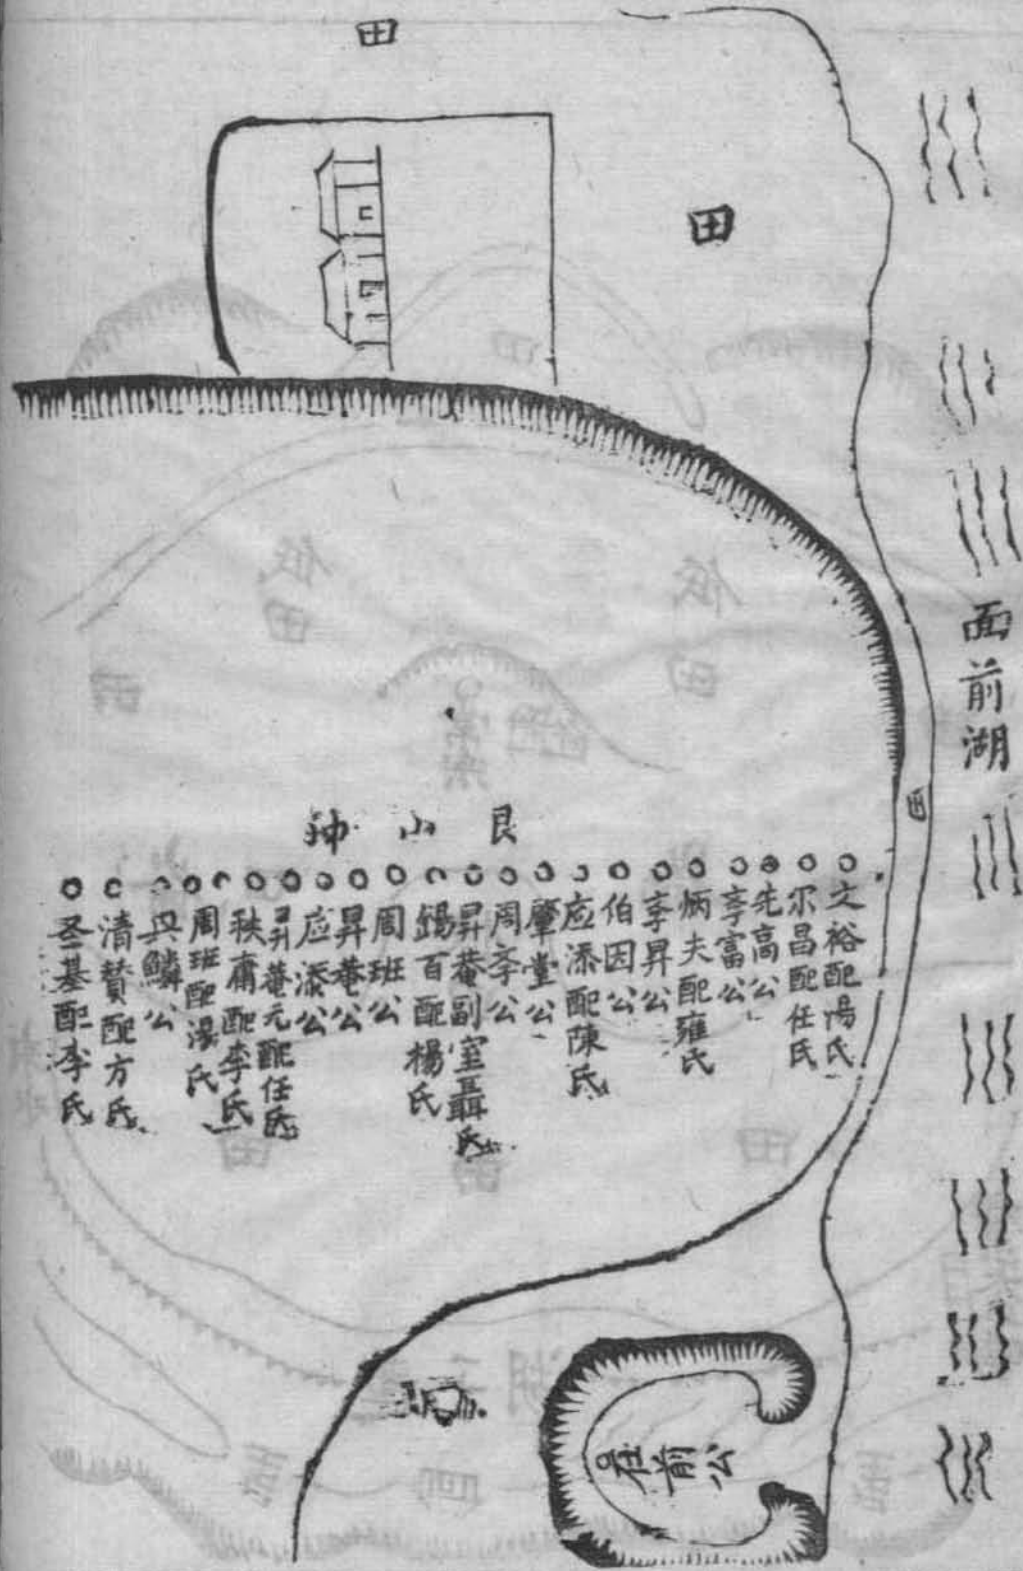 田
田
面前湖
田
艮山坤
文裕配湯氏
尔昌配任氏
先高公
享富公
炳夫配雍氏
享昇公
伯因公
应添配陳氏
肇堂公
周李公
昇菴副室聶氏
錫百配楊氏
周班公
昇菴公
应添公
昇菴元配任氏
秩庸配李氏
周班配湯氏
兴鱗公
清贊配方氏
圣基配李氏
前公